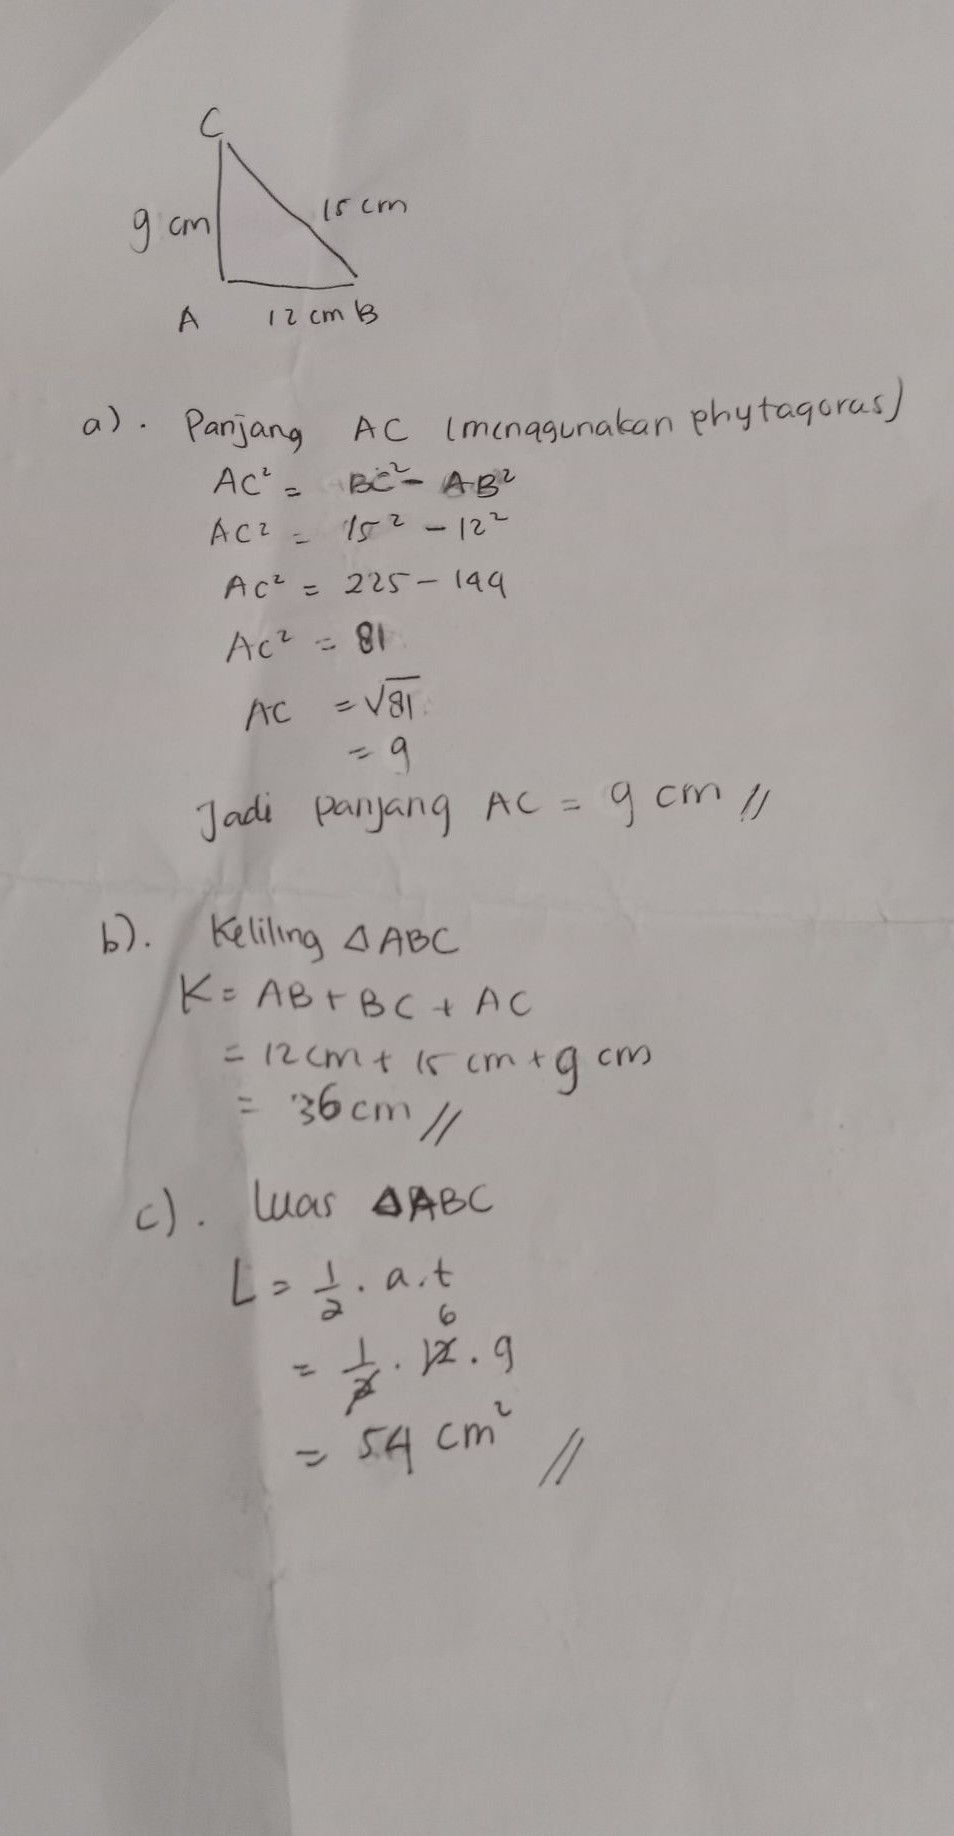 C
9 cm
15 cm
A 12 cm B
a). Panjang AC (menggunakan phytagoras)
AC² = BC² - AB²
AC² = 15² - 12²
AC² = 225 - 144
AC² = 81
AC = √81
= 9
Jadi panjang AC = 9 cm //
b). Keliling △ABC
K = AB + BC + AC
= 12 cm + 15 cm + 9 cm
= 36 cm //
c). Luas △ABC
L = 1/2 . a . t
6
= 1/2 . 12 . 9
= 54 cm² //